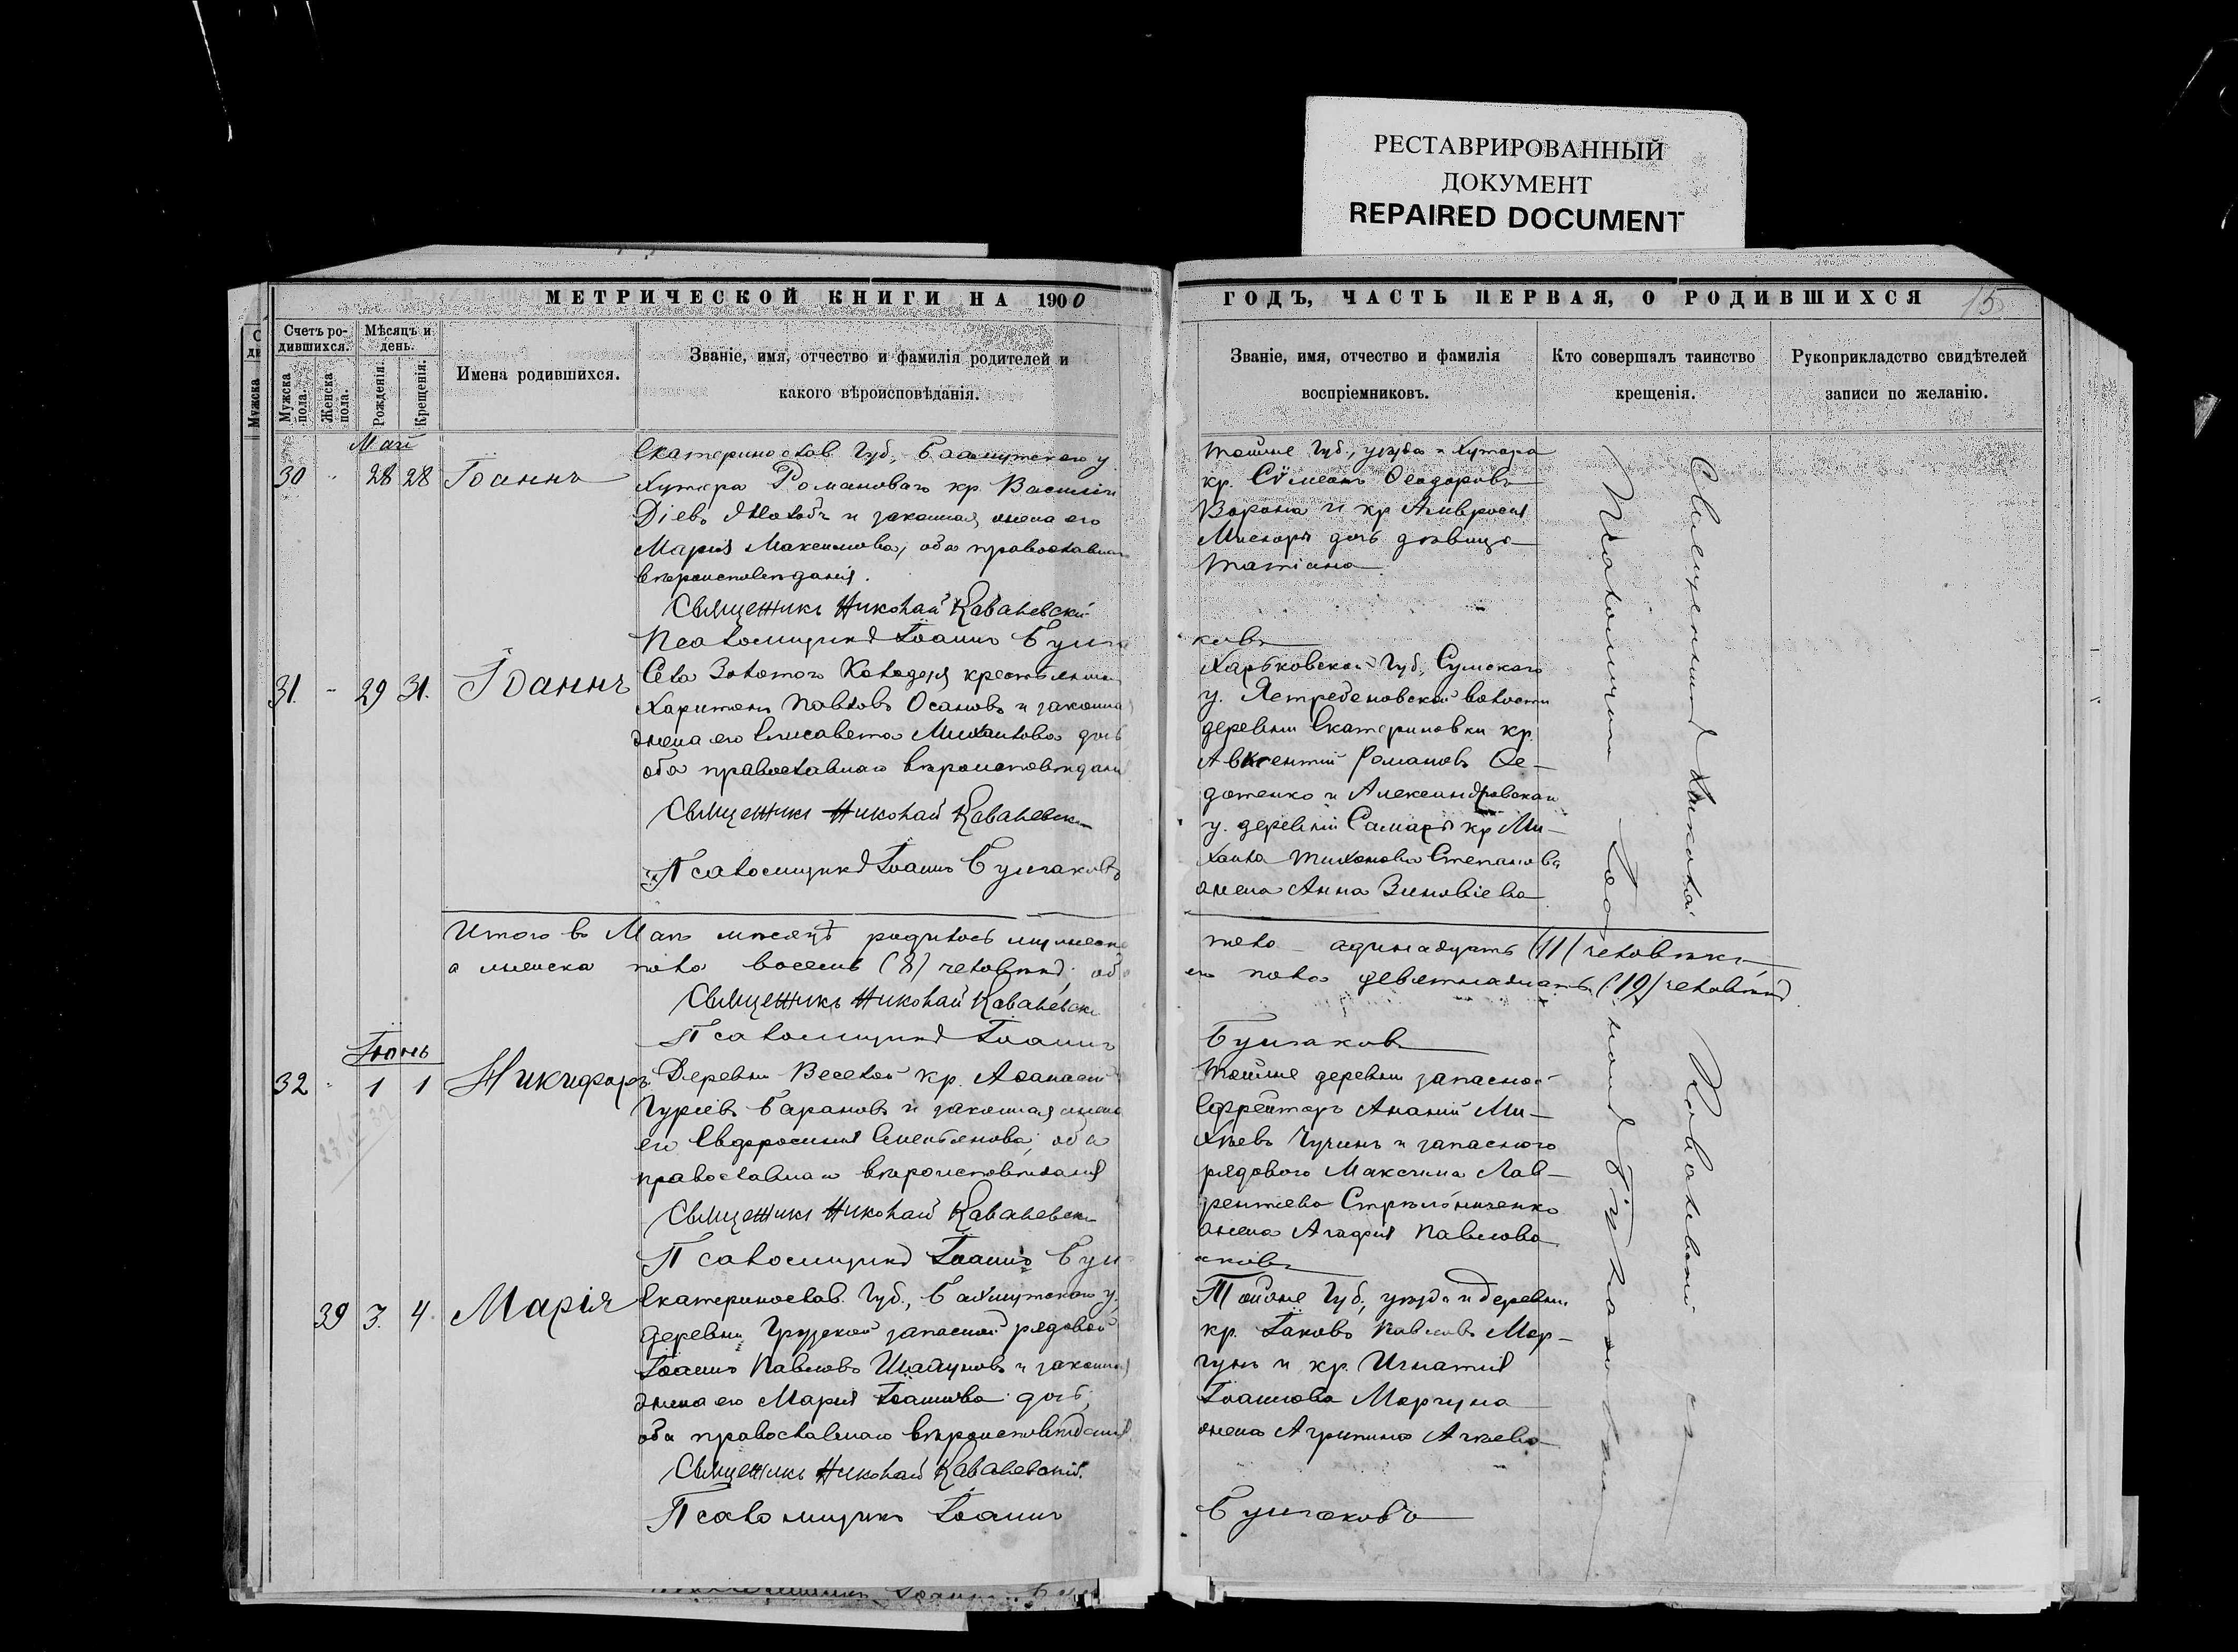 РЕСТАВРИРОВАННЫЙ
ДОКУМЕНТ
REPAIRED DOCUMENT
МЕТРИЧЕСКОЙ КНИГИ НА 1900
Счетъ ро-
дившихся.
Мѣсяцъ и
день.
Мужска
пола.
Женска
пола.
Рожденія.
Крещенія.
Имена родившихся.
Званіе, имя, отчество и фамилія родителей и
какого вѣроисповѣданія.
Май
30 28 28 Іоаннъ
Екатеринослав. Губ., Бахмутскаго у.
Хутора Романоваго кр. Василій
и законная жена его
Марія Максимова, оба православнаго
вѣроисповѣданія.
Священникъ Николай Каваневскій
Псаломщикъ Іоаннъ Булга
31. - 29 31. Іоаннъ
Села Золотого Колодезя крестьянинъ
Харитонъ Павловъ Осаповъ и законная
жена его Елисавета Михаилова дочь
оба православнаго вѣроисповѣданія
Священникъ Николай Каваневскій
Псаломщикъ Іоаннъ Булгаковъ
Итого въ Маѣ мѣсяцѣ родилось мужеска
а женска пола восемь (8) человѣкъ; обо
Священникъ Николай Каваневскій
Псаломщикъ Іоаннъ
Іюнь
32 1 1 Никифоръ
Деревни Веселой кр. Аѳанасій
Гуріевъ Барановъ и законная жена
его Евфросинія Емельянова, оба
православнаго вѣроисповѣданія
Священникъ Николай Каваневскій
Псаломщикъ Іоаннъ Бул
39 3. 4 Марія
Екатеринослав. Губ., Бахмутскаго у.
деревни Грузской запасной рядовой
Іоаннъ Павловъ Шапуновъ и законная
жена его Марія Іоаннова дочь,
оба православнаго вѣроисповѣданія.
Священникъ Николай Каваневскій.
Псаломщикъ Іоаннъ
ГОДЪ, ЧАСТЬ ПЕРВАЯ, О РОДИВШИХСЯ 15
Званіе, имя, отчество и фамилія
воспріемниковъ.
Кто совершалъ таинство
крещенія.
Рукоприкладство свидѣтелей
записи по желанію.
Тойже Губ., уѣзда и Хутора
кр. Сѵмеонъ Ѳеодоровъ
Ворона и кр Амвросія
дочь дѣвица
Татіана
ковъ
Харьковской Губ., Сумскаго
у. Ястребеновской волости
деревни Екатериновки кр.
Авксентій Романовъ Ѳе-
дотенко и Александровскаго
у. деревни Самары кр Ми-
хаила Тихонова Степанова
жена Анна Зиновіева
пола одинадцать (11) человѣкъ
его пола девятнадцать (19) человѣкъ
Булгаковъ
Тойже деревни запасной
Ефрейторъ Ананій Ми-
хѣевъ Чучинъ и запаснаго
рядового Максима Лав-
рентіева Стрѣльниченко
жена Агафія Павлова
аковъ
Тойже Губ., уѣзда и деревни
кр. Іаковъ Павловъ Мор-
гунъ и кр. Игнатія
Іоаннова Моргуна
жена Агрипина
Булгаковъ
Священникъ Николай Каваневскій съ
Псаломщикомъ Іоанномъ Булгаковымъ